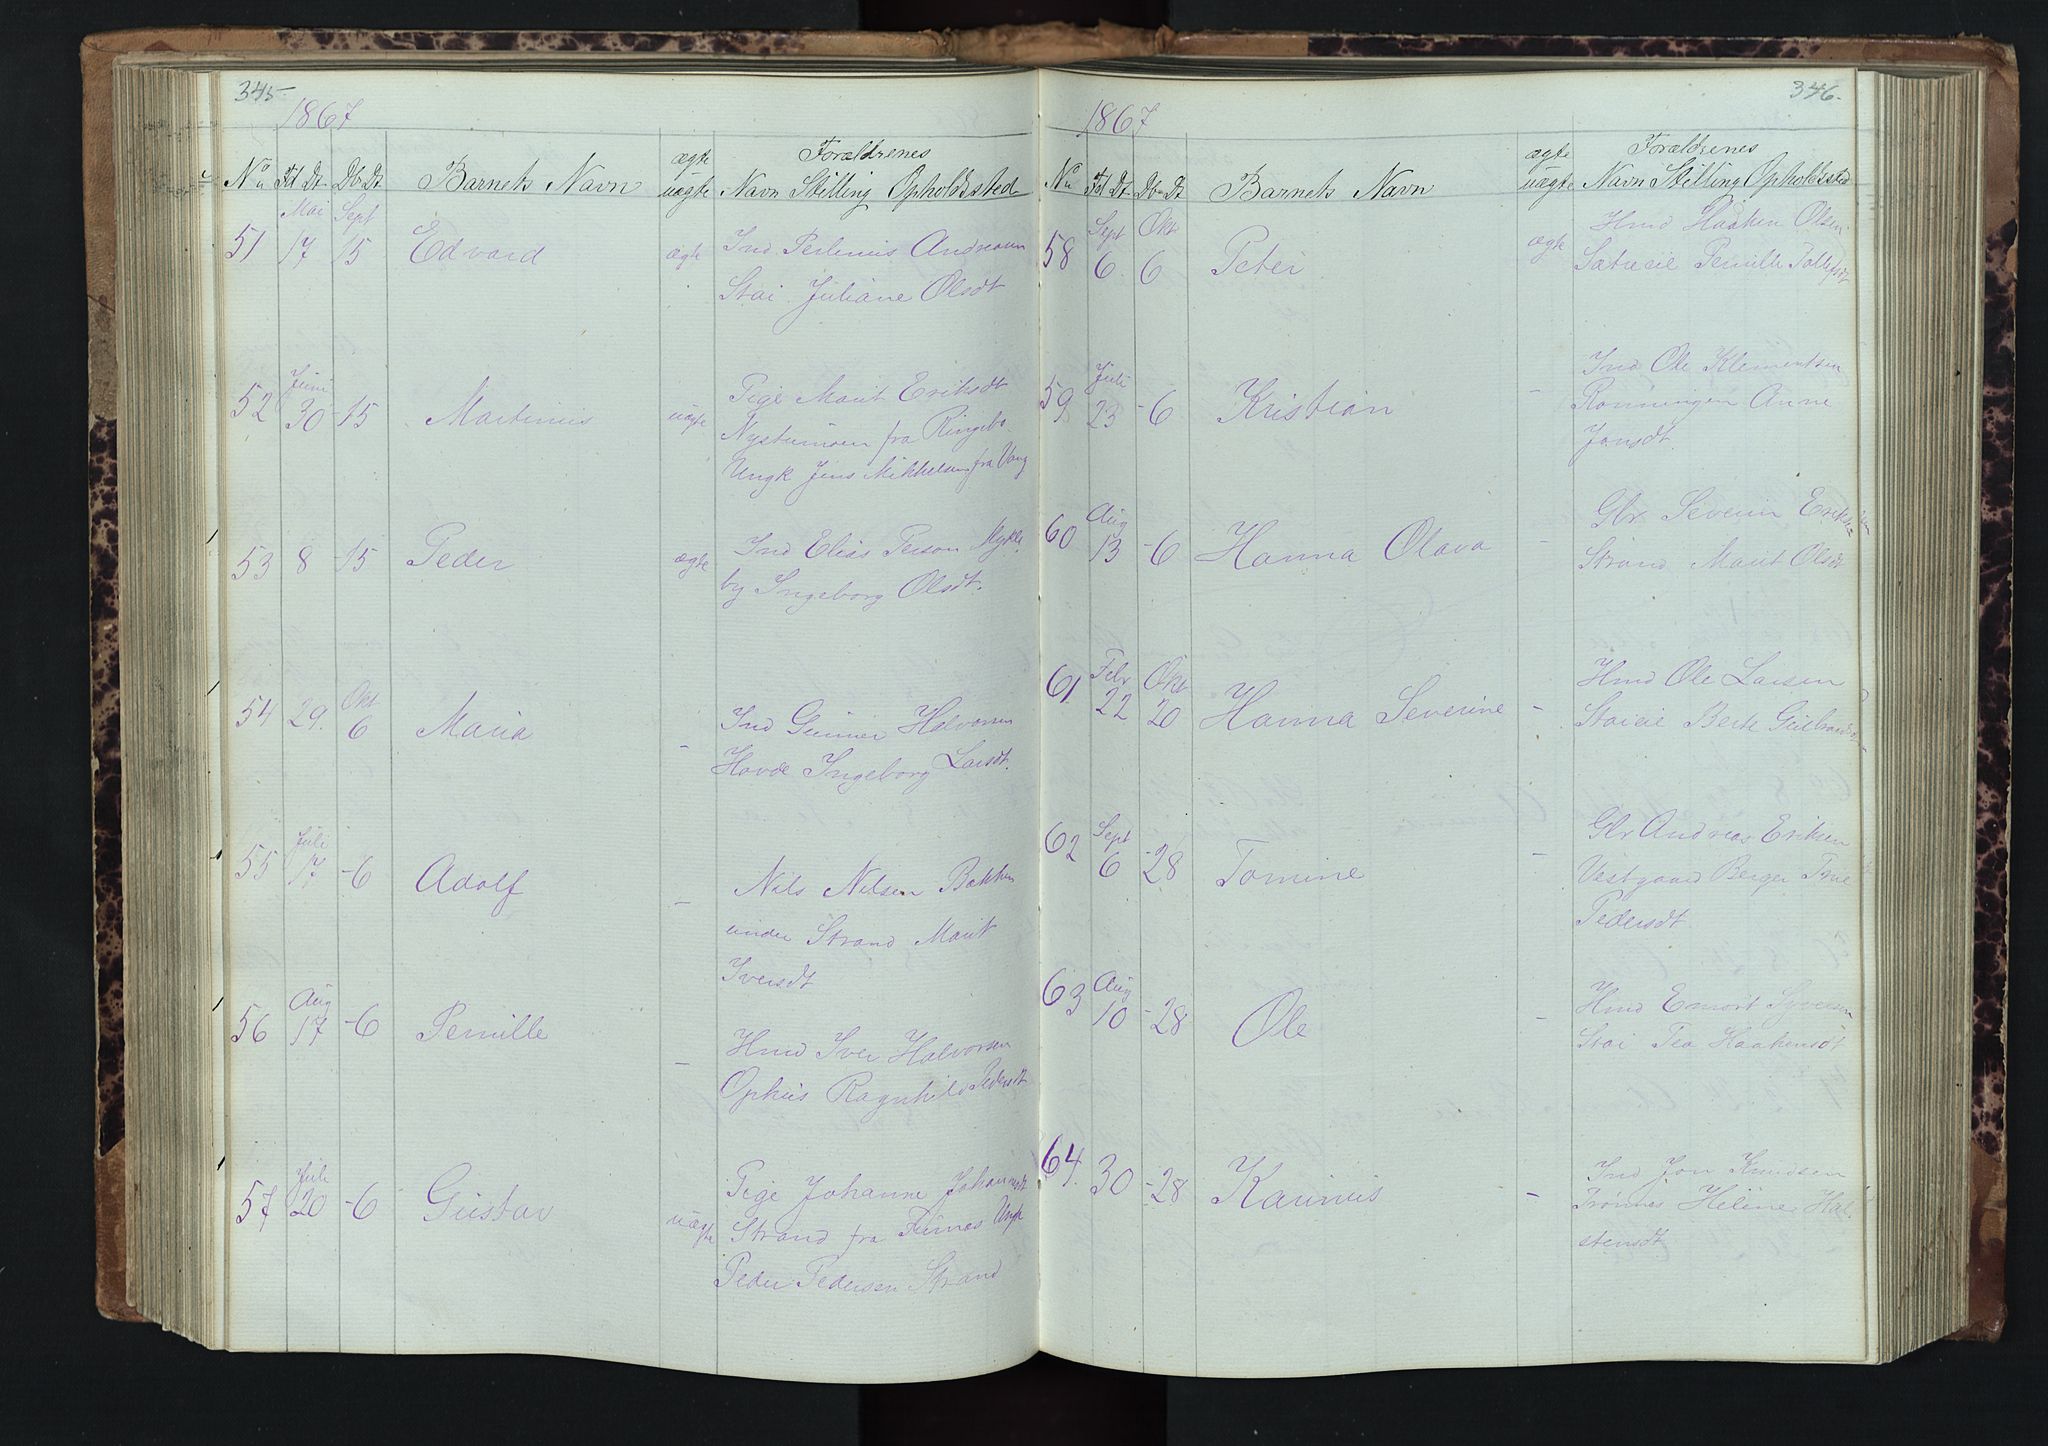 345.
1867
No Fd Dt Db Dt Barnets Navn ægte uægte Forældrenes Navn Stilling Opholdssted
51 Mai 17 Sept 15 Edvard ægte Ind Andreasen
Stai Juliane Olsdt
52 Juni 30 - 15 Martinus uægte Pige Marit Eriksdt
Nystumoen fra Ringebo.
Ungk Jens Mikkelsen fra Vang
53 8 - 15 Peder ægte Ind Elias Person Mykle
by Ingeborg Olsdt.
54 29. Okt 6 Maria - Ind Gunner Halvorsen
Hovde Ingeborg Larsdt.
55 Juli 17. - 6 Adolf - Nils Nilsen Bakken
under Strand Marit
Iversdt
56 Aug 17 - 6 Pernille - Hmd Iver Halvorsen
Ophus Ragnhild Pedersdt
57 Juli 20 - 6 Gustav uægte Pige Johanne Johannesdt
Strand fra Furnæs Ungk
Peder Pedersen Strand
346.
1867
No Fd Dt Db Dt Barnets Navn ægte uægte Forældrenes Navn Stilling Opholdssted
58 Sept 6 Okt 6 Peter ægte Hmd Haaken Olsen
Pernille Tollefsdt
59 Juli 23 - 6 Kristian - Ind Ole Klementsen
Rønningen Anne
Jonsdt
60 Aug 13 - 6 Hanna Olava - Gbr Severin Eriksen
Strand Marit Olsdt
61 Febr 22 Okt 20 Hanna Severine - Hmd Ole Larsen
Staieie Berte Gulbrandsdt
62 Sept 6 - 28 Tomine - Gbr Andreas Eriksen
Vestgaard Berger Tine
Pedersdt
63 Aug 10 - 28 Ole - Hmd Syversen
Stai Tea Haakensdt
64. 30 - 28 Karinus - Ind Jon Knudsen
Trønnes Heline Hal
stensdt